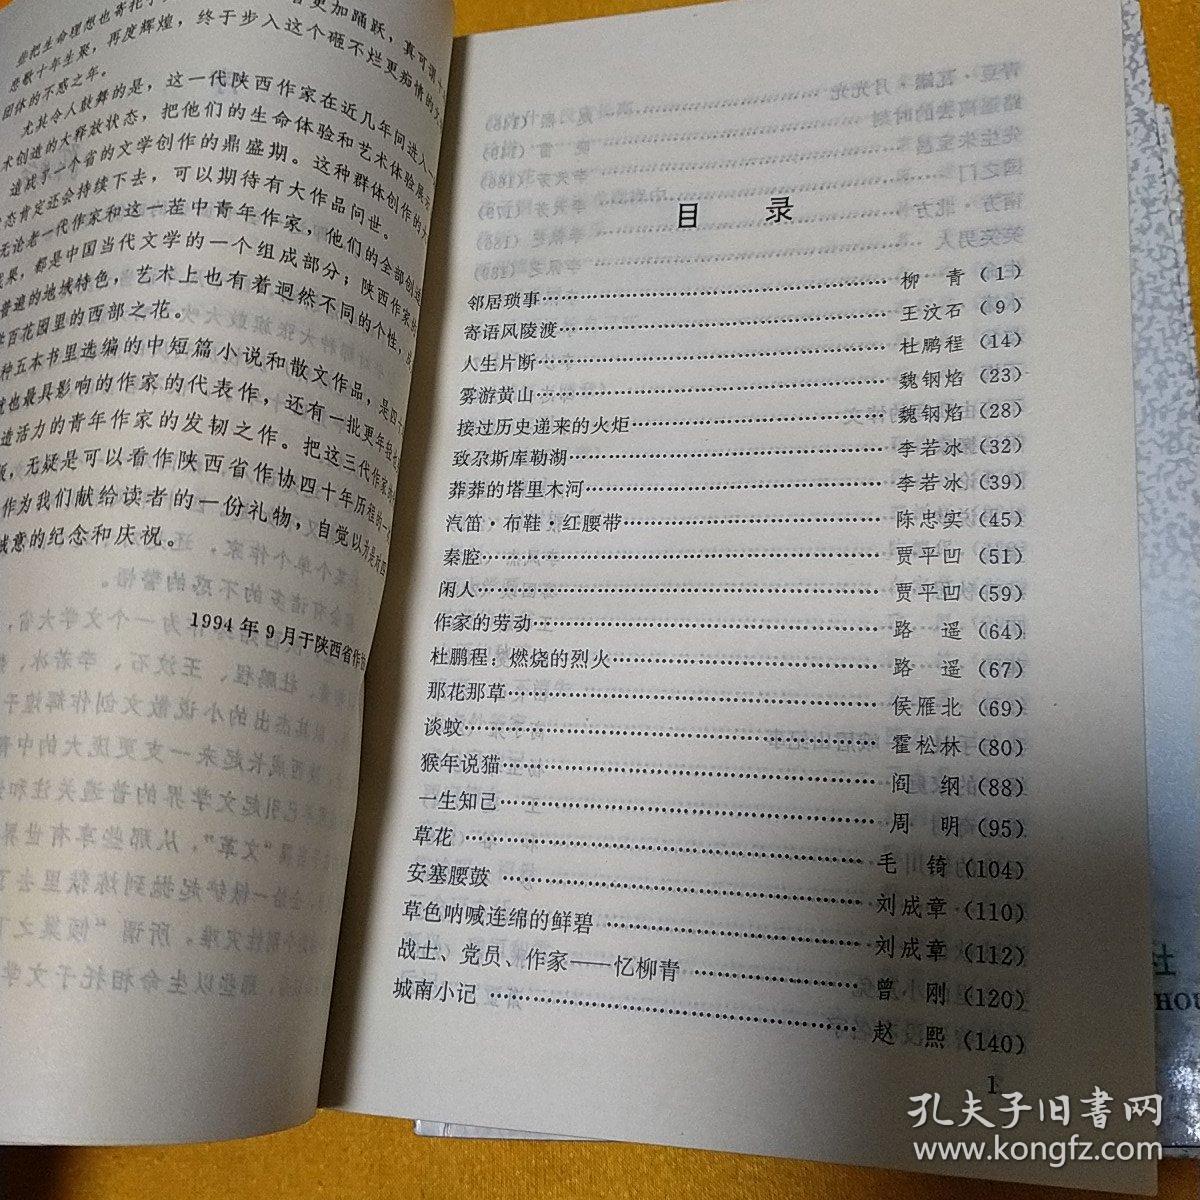 些把生命理想也寄托于
更加踊跃，真可谓十
悲歌十年生聚，再度辉煌，终于步入这个砸不烂更痴情的文
团体的不惑之年。
尤其令人鼓舞的是，这一代陕西作家在近几年间进入
术创造的大释放状态，把他们的生命体验和艺术体验展示
造成了一个省的文学创作的鼎盛期。这种群体创作的
态肯定还会持续下去，可以期待有大作品问世。
无论老一代作家和这一茬中青年作家，他们的全部创造
成果，都是中国当代文学的一个组成部分；陕西作家的
普遍的地域特色，艺术上也有着迥然不同的个性，
百花园里的西部之花。
种五本书里选编的中短篇小说和散文作品，是四十
就也最具影响的作家的代表作，还有一批更年轻也
造活力的青年作家的发轫之作。把这三代作家
版，无疑是可以看作陕西省作协四十年历程的一
作为我们献给读者的一份礼物，自觉以为是对四
诚意的纪念和庆祝。
1994年9月于陕西省作协
目 录
邻居琐事……柳 青（1）
寄语风陵渡……王汶石（9）
人生片断……杜鹏程（14）
雾游黄山……魏钢焰（23）
接过历史递来的火炬……魏钢焰（28）
致尕斯库勒湖……李若冰（32）
莽莽的塔里木河……李若冰（39）
汽笛·布鞋·红腰带……陈忠实（45）
秦腔……贾平凹（51）
闲人……贾平凹（59）
作家的劳动……路 遥（64）
杜鹏程：燃烧的烈火……路 遥（67）
那花那草……侯雁北（69）
谈蚊……霍松林（80）
猴年说猫……阎 纲（88）
一生知己……周 明（95）
草花……毛 锜（104）
安塞腰鼓……刘成章（110）
草色呐喊连绵的鲜碧……刘成章（112）
战士、党员、作家——忆柳青……曾 刚（120）
城南小记……赵 熙（140）
1
社
HOU
孔夫子旧书网
www.kongfz.com